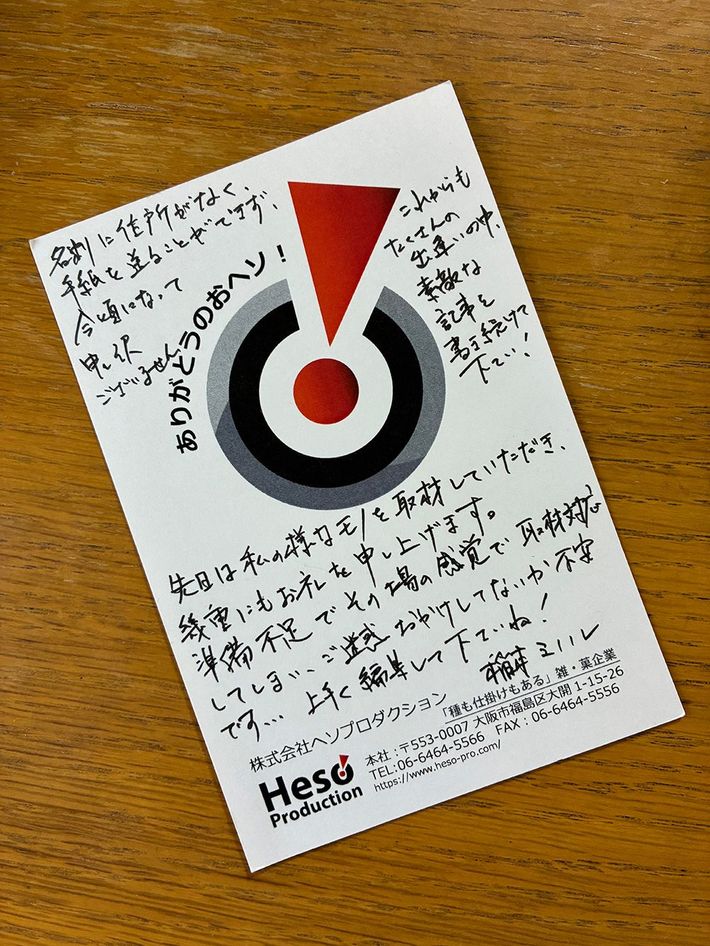 名刺に住所がなく、
手紙を送ることができず、
今頃になって
申し訳
ございません
ありがとうのおヘソ!
これからも
たくさんの
出逢いの中、
素敵な
記事を
書き続けて
下さい!
先日は私の様なモノを取材していただき、
幾重にもお礼を申し上げます。
準備不足でその場の感覚で取材対応
してしまい、ご迷惑おかけしてないか不安
です… 上手く編集して下さいね!
稲本ミノル
株式会社ヘソプロダクション
「種も仕掛けもある」雑・菓企業
Heso Production
本社:〒553-0007 大阪市福島区大開 1-15-26
TEL:06-6464-5566 FAX:06-6464-5556
https://www.heso-pro.com/